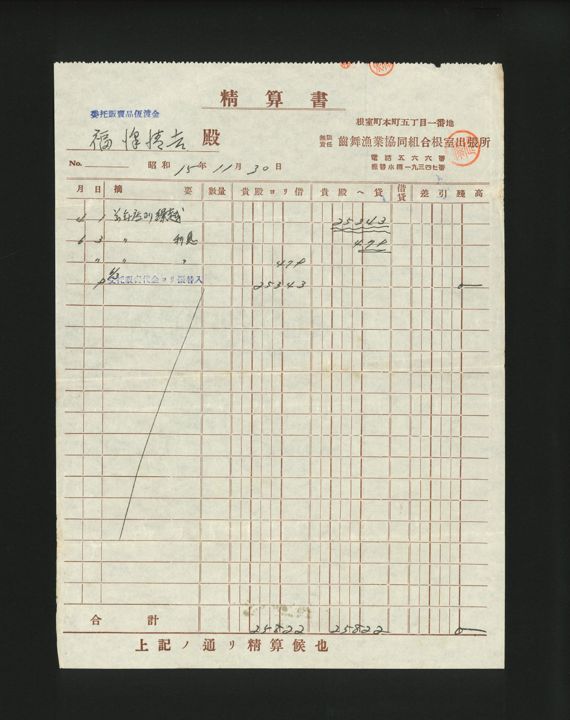 精算書
委托販賣品仮渡金
根室町本町五丁目一番地
福澤清吉 殿
無限責任 齒舞漁業協同組合根室出張所
電話五六六番
振替小樽一九三四七番
No. 昭和 15年 11月 30日
月 日 摘要 數量 貴殿ヨリ借 貴殿ヘ貸 借貸 差引殘高
4 1 繰越 25343
6 3 〃 利息 479
〃 〃 〃 479
委托販賣代金ヨリ振替入 25343 0
合計 25822 25822 0
上記ノ通リ精算候也